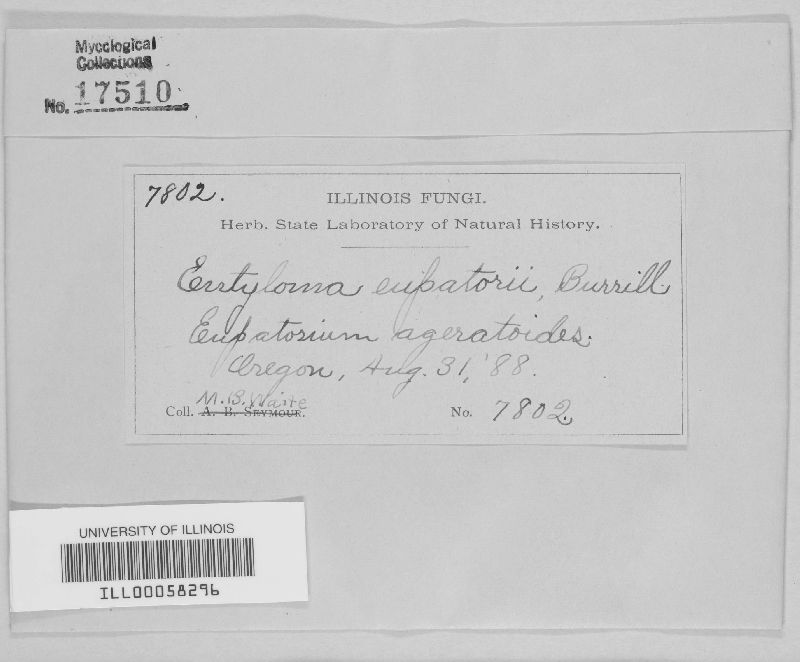 Mycological
Collections
No. 17510
7802.
ILLINOIS FUNGI.
Herb. State Laboratory of Natural History.
Entyloma eupatorii, Burrill
Eupatorium ageratoides.
Oregon, Aug. 31, '88.
M. B. Waite
Coll. A. B. SEYMOUR.
No. 7802.
UNIVERSITY OF ILLINOIS
ILL00058296